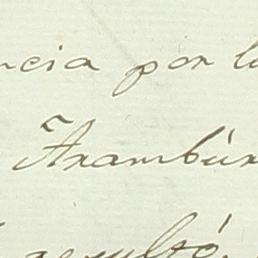 ncia por l
Arambúr
resultó.